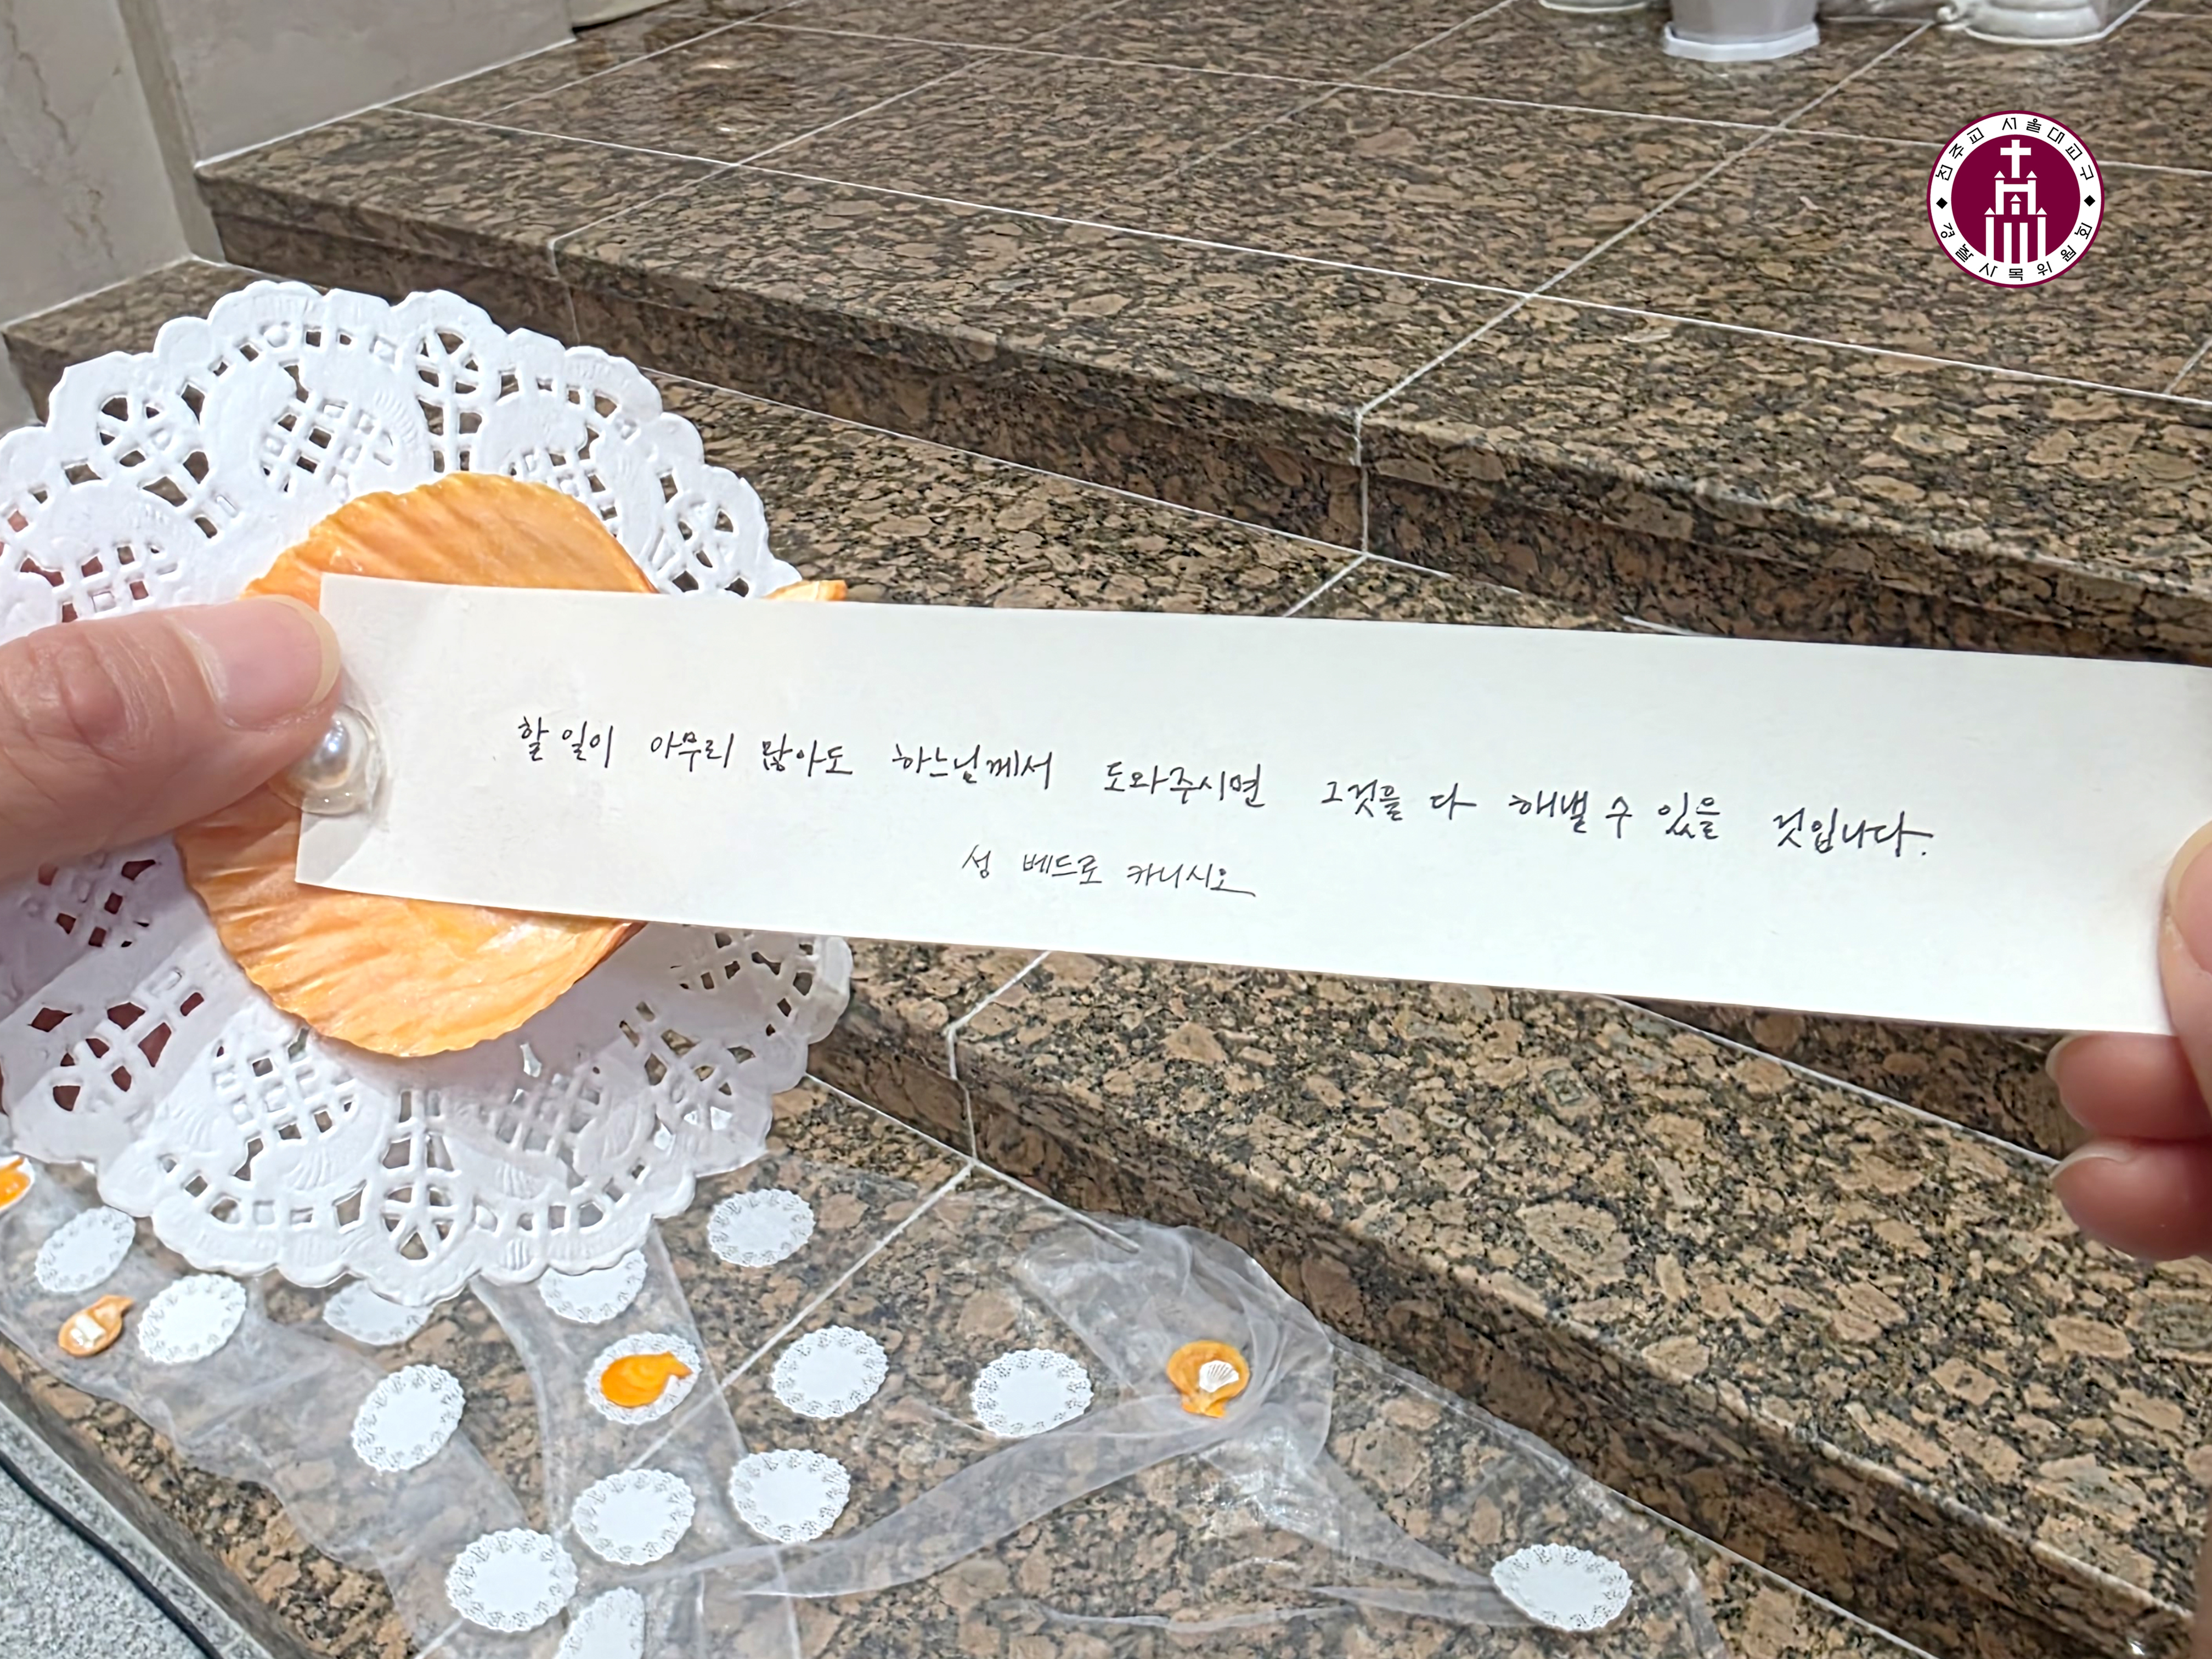 천주교 서울대교구
경찰사목위원회
할 일이 아무리 많아도 하느님께서 도와주시면 그것을 다 해낼 수 있을 것입니다.
성 베드로 카니시오